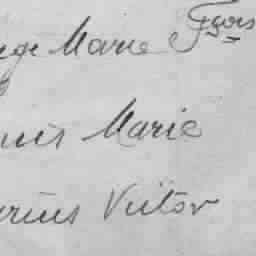 ege Marie Fçois
ouis Marie
arius Victor